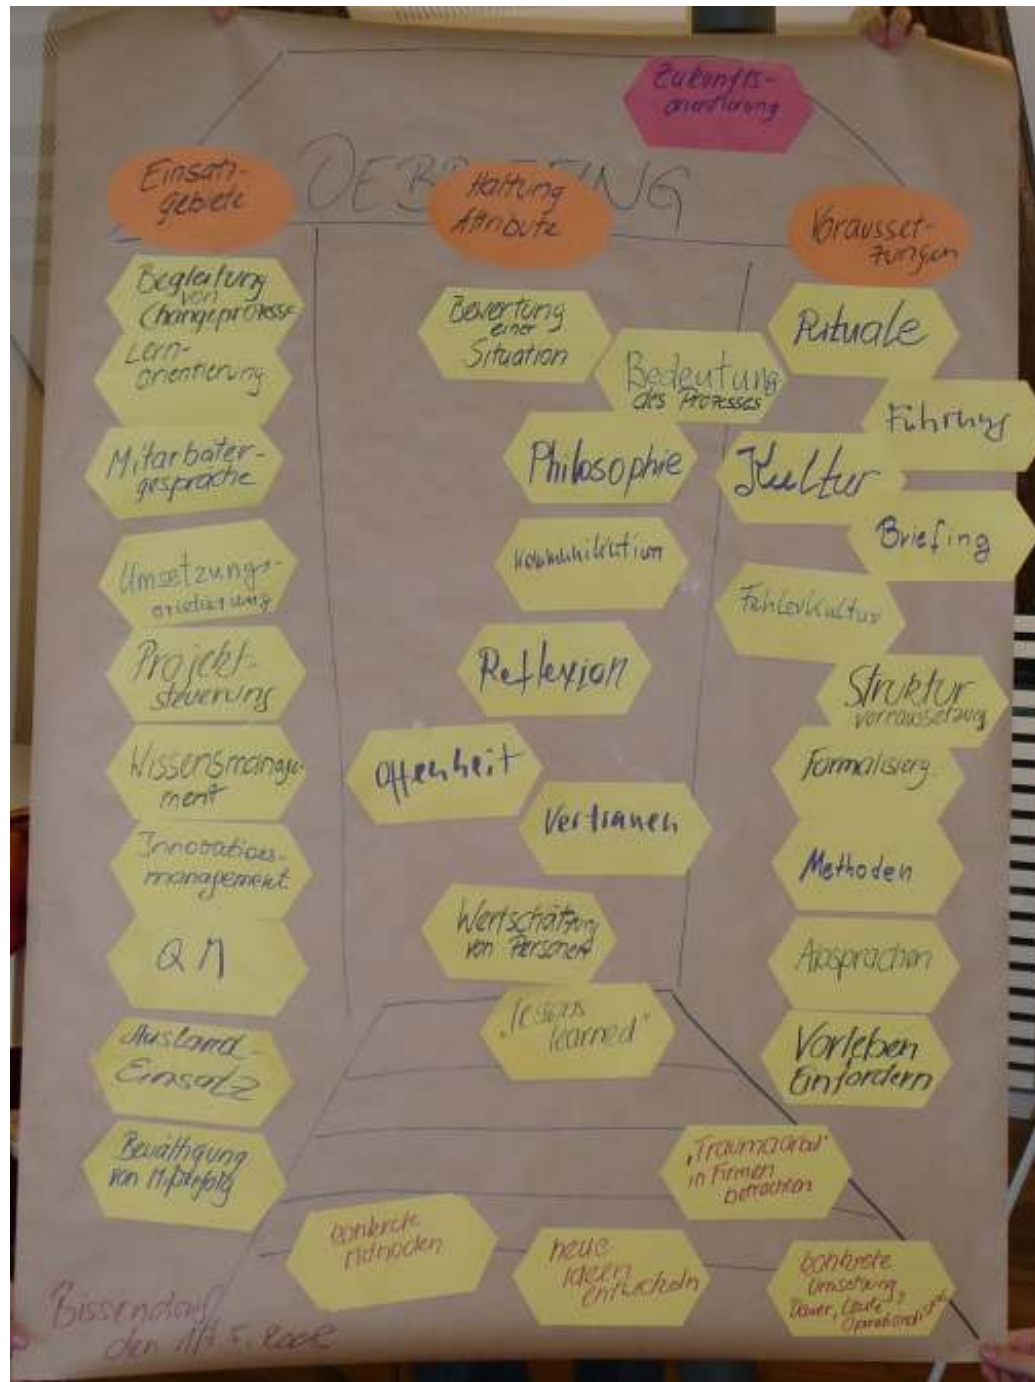 Zukunfts-
orientierung
DEBRIEFING
Einsatz-
gebiete
Begleitung
von
Changeprozesse
Lern-
orientierung
Mitarbater-
gespräche
Umsetzungs-
Projekt-
steuerung
Wissensmanage-
ment
Innovations-
management
QM
Ausland-
Einsatz
Bewältigung
von Mißerfolg
Haltung
Attribute
Bewertung
einer
Situation
Bedeutung
des Prozesses
Philosophie
Kommunikation
Reflexion
Offenheit
Vertrauen
Wertschätzung
von Personen
"lessons
learned"
Vorausset-
zungen
Rituale
Führung
Kultur
Briefing
Fehlerkultur
Struktur
vorraussetzung
Formalisierg.
Methoden
Absprachen
Vorleben
Einfordern
in Firmen
betrachten
konkrete
Methoden
neue
Ideen
entwickeln
konkrete
Umsetzung
Dauer, Leute,
Bissendorf
den